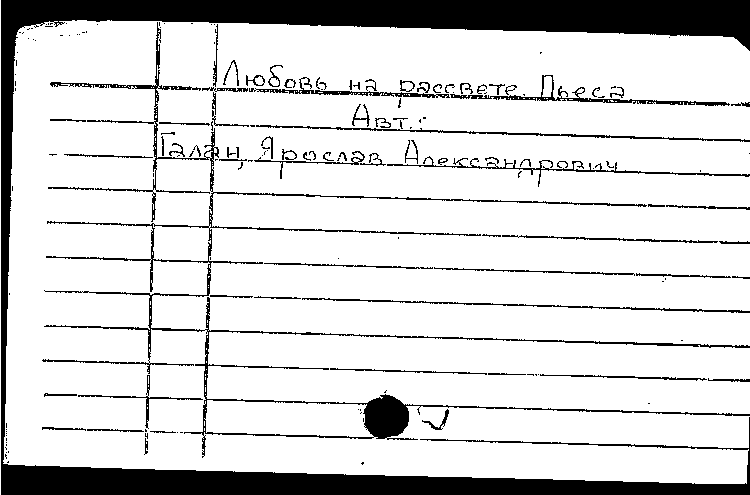 Любовь на рассвете. Пьеса
Авт.:
Галан, Ярослав Александрович